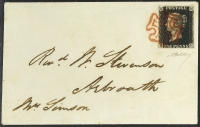 POSTAGE
ONE PENNY
Revd. W. Stevenson
Arbroath
Mr Simson